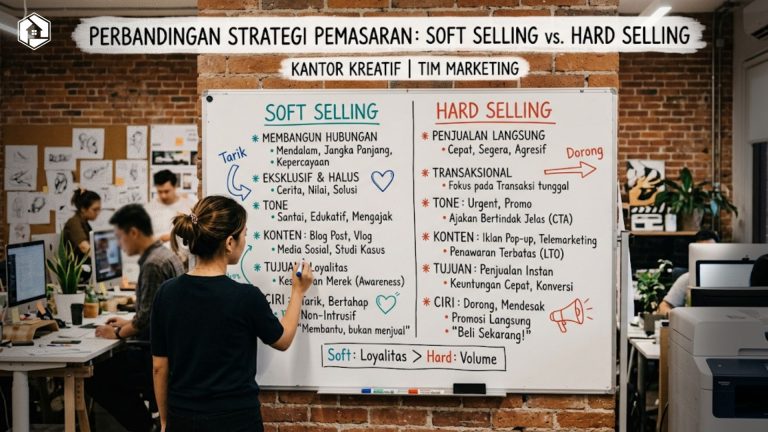 PERBANDINGAN STRATEGI PEMASARAN: SOFT SELLING vs. HARD SELLING
KANTOR KREATIF | TIM MARKETING
SOFT SELLING
* MEMBANGUN HUBUNGAN
• Mendalam, Jangka Panjang,
• Kepercayaan
Tarik
* EKSKLUSIF & HALUS
• Cerita, Nilai, Solusi
* TONE
• Santai, Edukatif, Mengajak
* KONTEN: Blog Post, Vlog
• Media Sosial, Studi Kasus
* Loyalitas
Merek (Awareness)
CIRI: Tarik, Bertahap
Non-Intrusif
"Membantu, bukan menjual"
HARD SELLING
* PENJUALAN LANGSUNG
• Cepat, Segera, Agresif
Dorong
* TRANSAKSIONAL
• Fokus pada Transaksi tunggal
* TONE: Urgent, Promo
• Ajakan Bertindak Jelas (CTA)
* KONTEN: Iklan Pop-up, Telemarketing
• Penawaran Terbatas (LTO)
* TUJUAN: Penjualan Instan
• Keuntungan Cepat, Konversi
* CIRI: Dorong, Mendesak
• Promosi Langsung
• "Beli Sekarang!"
Soft: Loyalitas > Hard: Volume